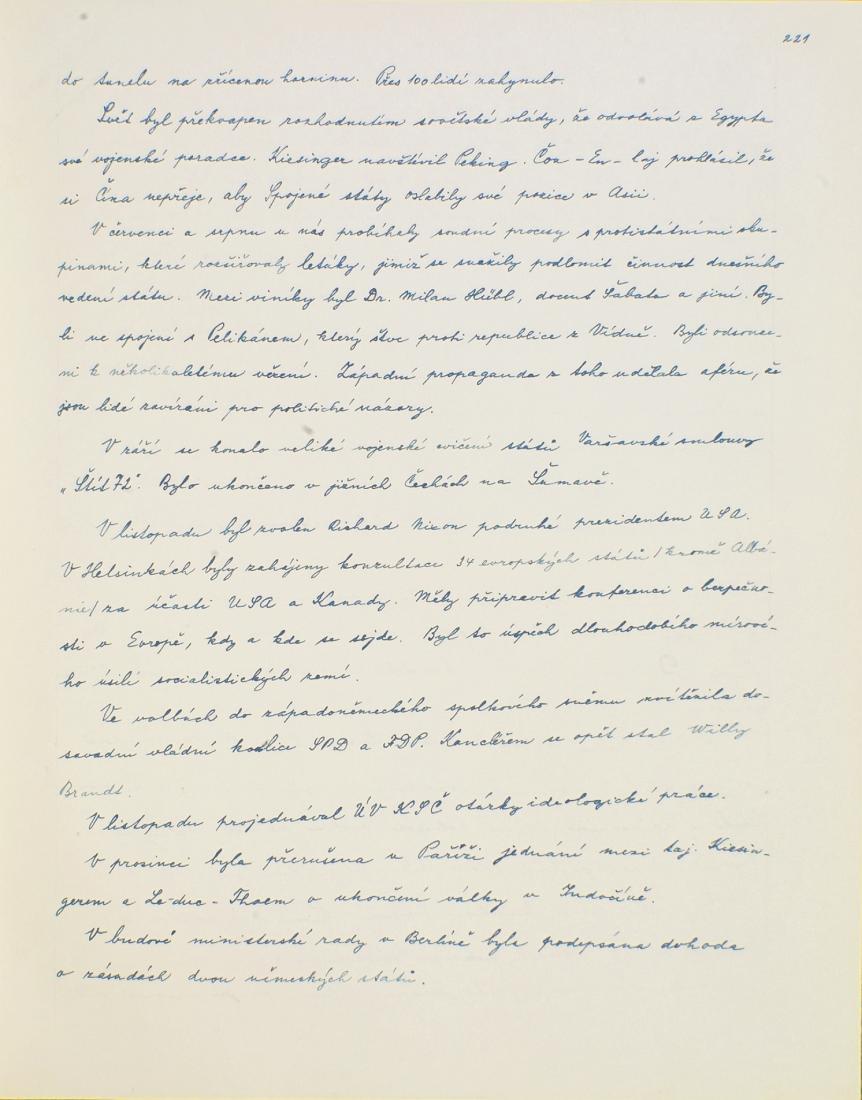 221
do tunelu na zřícenou horninu. Přes 100 lidí zahynulo.
Svět byl překvapen rozhodnutím sovětské vlády, že odvolává z Egypta
své vojenské poradce. Kiesinger navštívil Peking. Čou-En-laj prohlásil, že
si Čína nepřeje, aby Spojené státy oslabily své pozice v Asii.
V červenci a srpnu u nás probíhaly soudní procesy s protistátními sku-
pinami, které rozšiřovaly letáky, jimiž se snažily podlomit činnost dnešního
vedení státu. Mezi viníky byl Dr. Milan Hübl, docent Šabata a jiní. By-
li ve spojení s Pelikánem, který štve proti republice z Vídně. Byli odsouze-
ni k několikaletému vězení. Západní propaganda z toho udělala aféru, že
jsou lidé zavíráni pro politické názory.
V září se konalo veliké vojenské cvičení států Varšavské smlouvy
„Štít 72". Bylo ukončeno v jižních Čechách na Šumavě.
V listopadu byl zvolen Richard Nixon podruhé prezidentem USA.
V Helsinkách byly zahájeny konzultace 34 evropských států /kromě Albá-
nie/ za účasti USA a Kanady. Měly připravit konferenci o bezpečno-
sti v Evropě, kdy a kde se sejde. Byl to úspěch dlouhodobého mírové-
ho úsilí socialistických zemí.
Ve volbách do západoněmeckého spolkového sněmu zvítězila do-
savadní vládní koalice SPD a FDP. Kancléřem se opět stal Willy
Brandt.
V listopadu projednával ÚV KSČ otázky ideologické práce.
V prosinci byla přerušena v Paříži jednání mezi taj. Kiesin-
gerem a Le-duc-Thoem o ukončení války v Indočíně.
V budově ministerské rady v Berlíně byla podepsána dohoda
o zásadách dvou německých států.